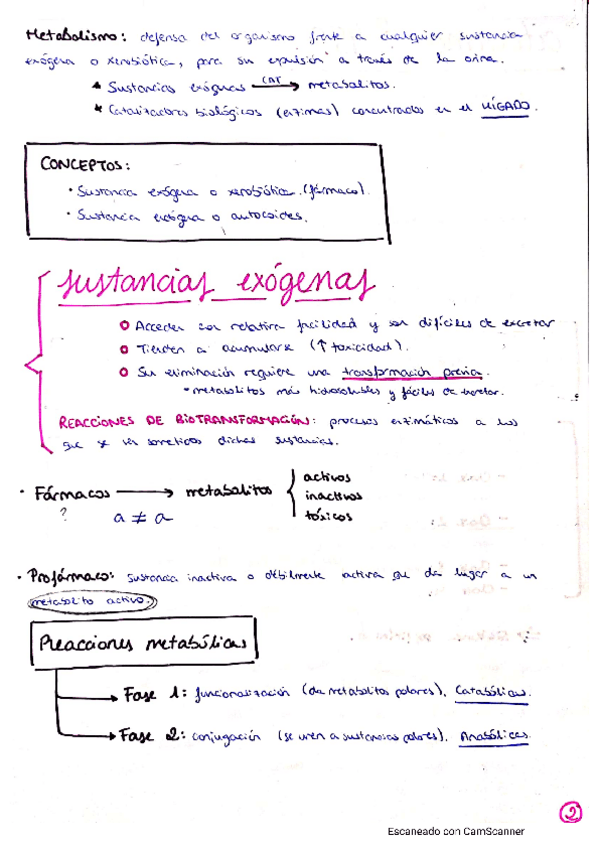 Metabolismo: defensa del organismo frente a cualquier sustancia
exógena o xenobiótica, para su expulsión a través de la orina.
* Sustancias exógenas CAT → metabolitos.
* Catalizadores biológicos (enzimas) concentrados en el HÍGADO.
CONCEPTOS:
• Sustancia exógena o xenobiótica. (fármaco).
• Sustancia o autocoides.
sustancias exógenas
Acceden con relativa facilidad y son difíciles de excretar
Tienden a acumularse (↑ toxicidad).
Su eliminación requiere una transformación previa.
* metabolitos más hidrosolubles y fáciles de excretar.
REACCIONES DE BIOTRANSFORMACIÓN: procesos enzimáticos a los
que se ven sometidos dichas sustancias.
• Fármacos → metabolitos { activos
inactivos
tóxicos
? a ≠ a
• Profármaco: sustancia inactiva o débilmente activa que da lugar a un
metabolito activo.
Reacciones metabólicas
→ Fase 1: funcionalización (da metabolitos polares). Catabólicas.
→ Fase 2: conjugación (se unen a sustancias polares). Anabólicas.
2
Escaneado con CamScanner